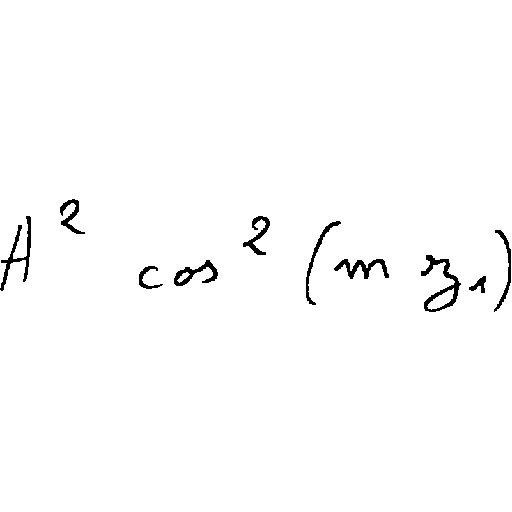 A² cos² (m z₁)